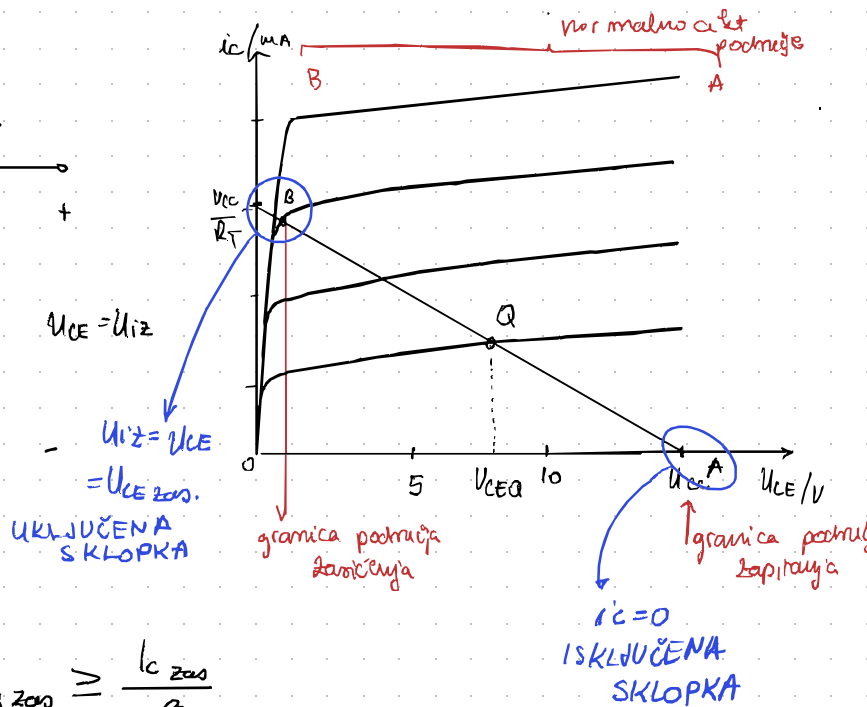 ic/mA
normalno akt
područje
B
A
UCC
RT
B
+
UCE = Uiz
Q
-
uiz = UCE
= UCE zas.
UKLJUČENA
SKLOPKA
0
5
UCEQ
10
UCC
A
UCE/V
granica područja
zasićenja
granica
zapiranja
ic=0
ISKLJUČENA
SKLOPKA
zas ≥ Ic zas